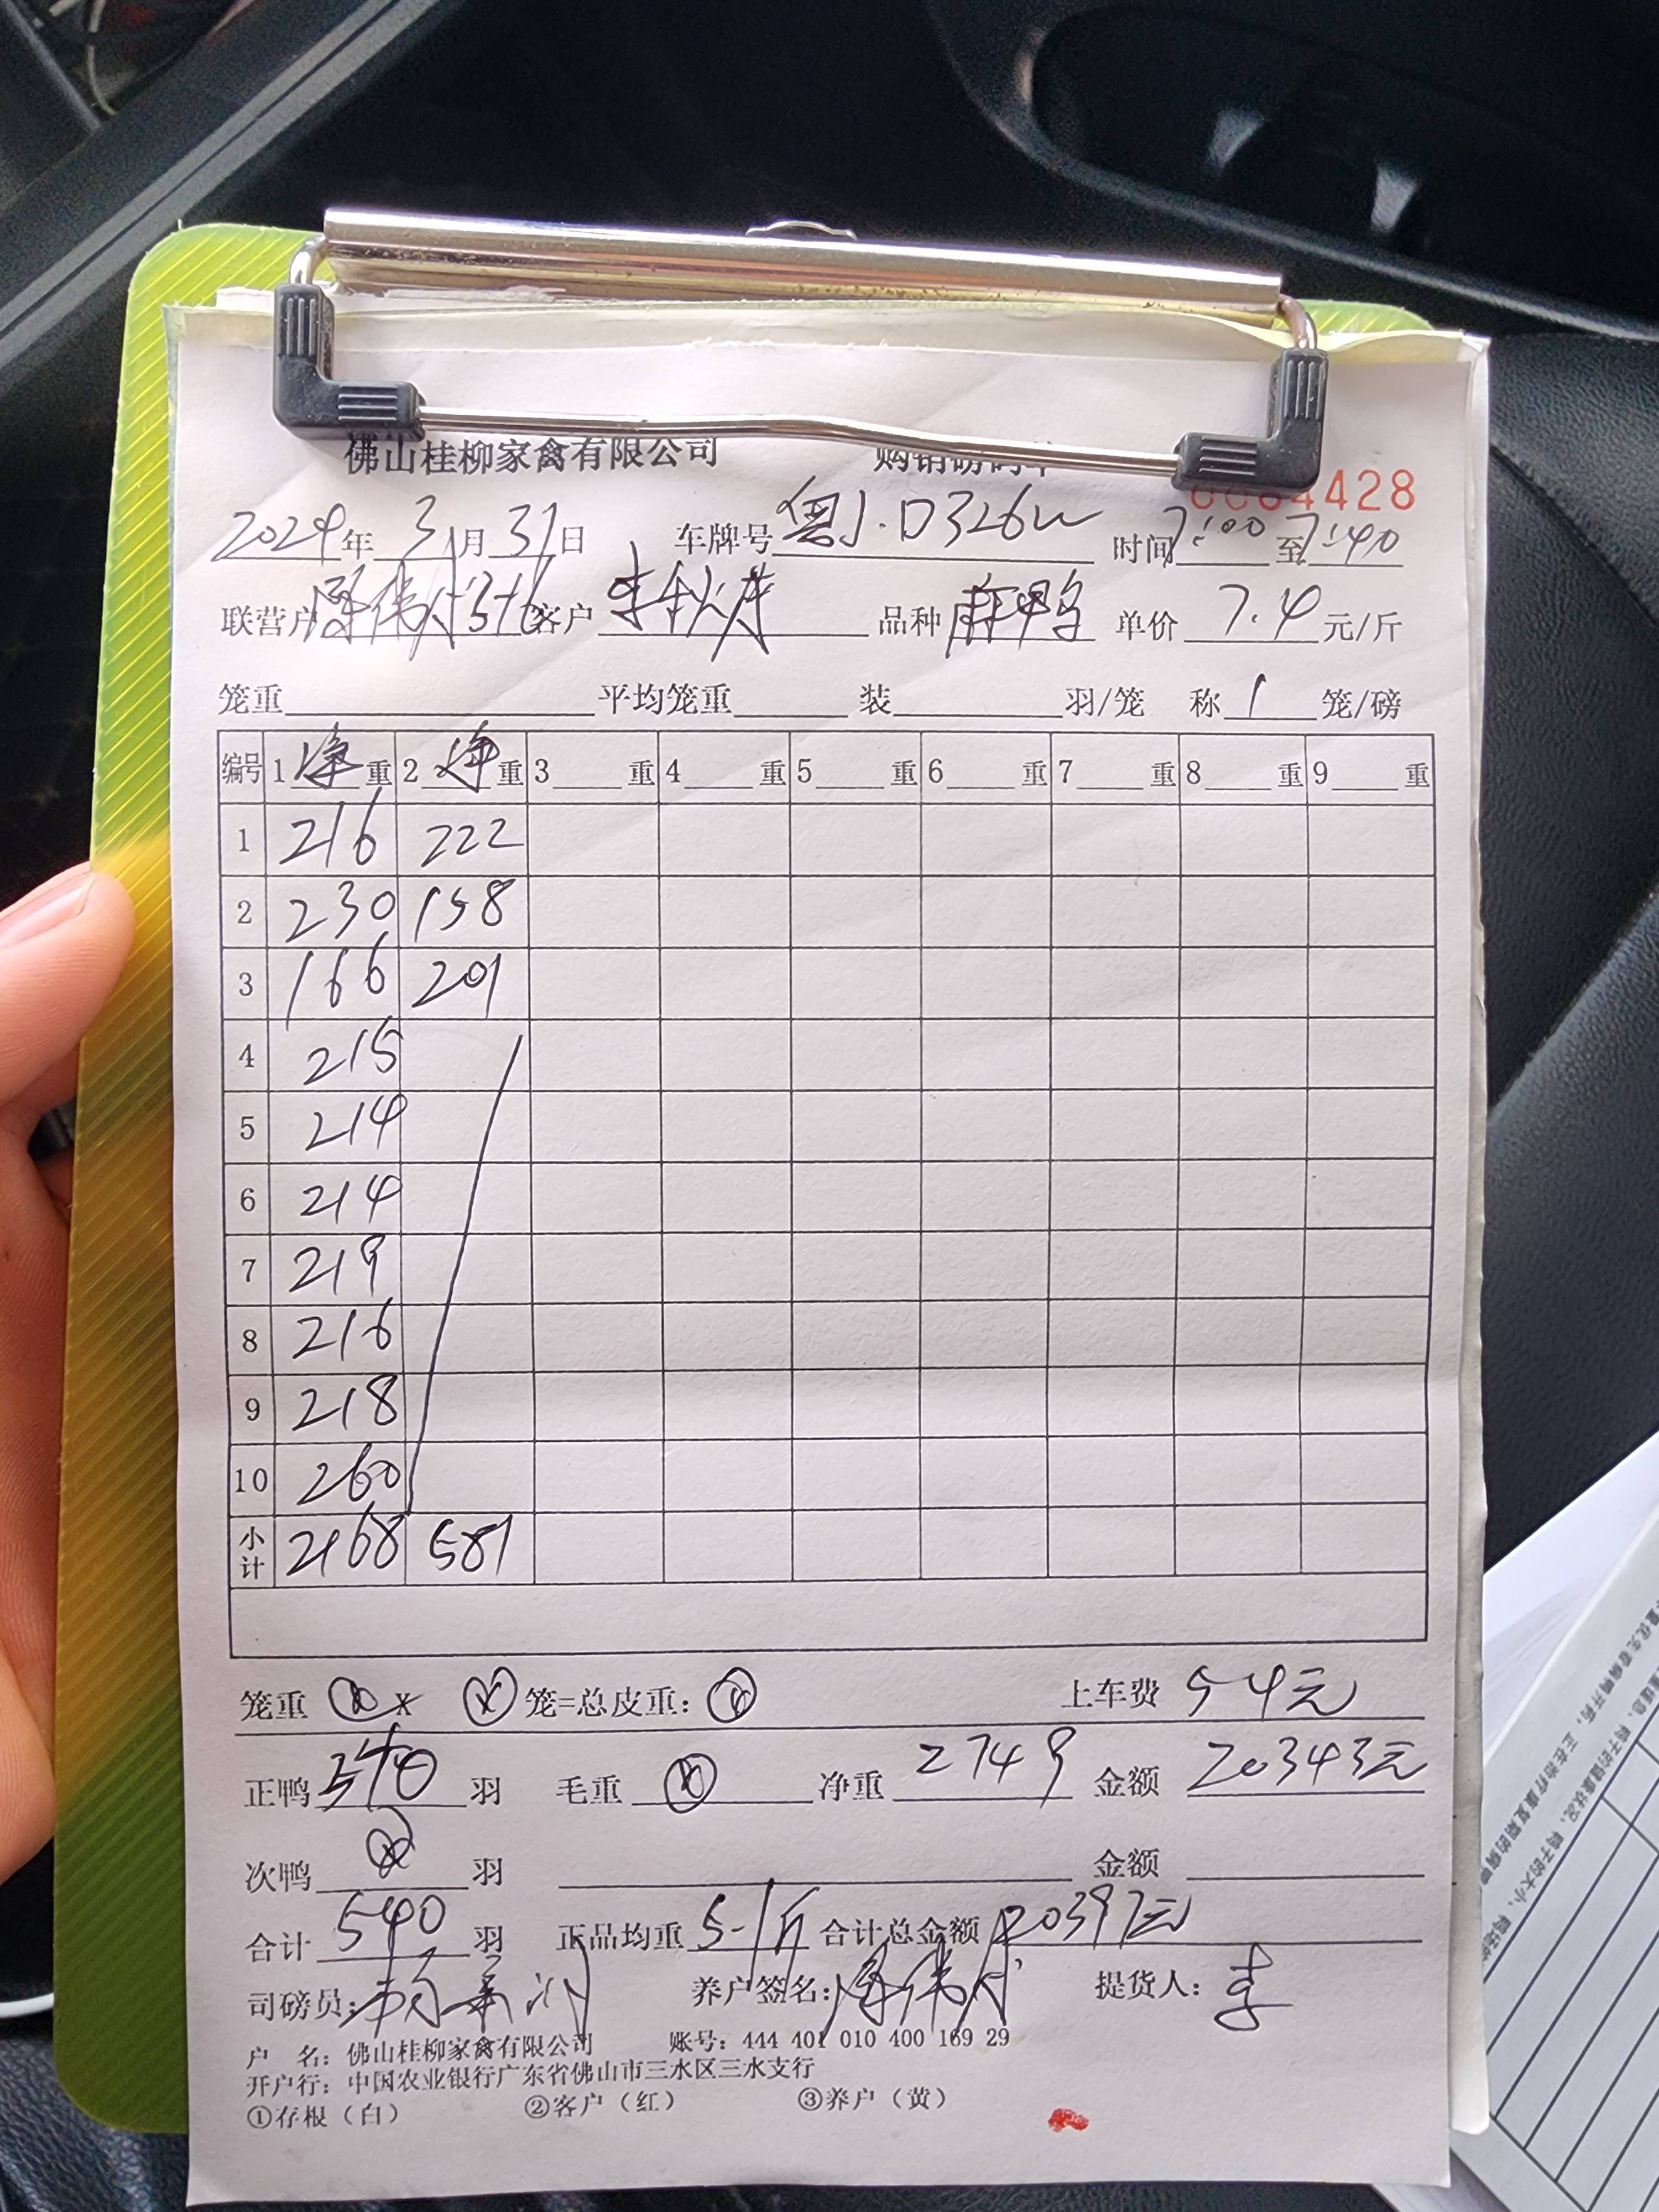 佛山桂柳家禽有限公司 购销磅码单
4428
2024年 3月 31日 车牌号 粤J·D326W 时间7:00至7:40
联营户 客户 李 品种 麻鸭 单价 7.4 元/斤
笼重 平均笼重 装 羽/笼 称 1 笼/磅
编号 1 净 重 2 净 重 3 重 4 重 5 重 6 重 7 重 8 重 9 重
1 216 222
2 230 158
3 166 201
4 215
5 214
6 214
7 219
8 216
9 218
10 260
小计 2168 581
笼重 ⊗ x ⊗ 笼=总皮重: ⊗ 上车费 54元
正鸭 540 羽 毛重 ⊗ 净重 2749 金额 20343元
次鸭 ⊗ 羽 金额
合计 540 羽 正品均重 5.1斤 合计总金额 20397元
司磅员: 养户签名: 提货人: 李
户 名: 佛山桂柳家禽有限公司 账号: 444 401 010 400 169 29
开户行: 中国农业银行广东省佛山市三水区三水支行
①存根（白） ②客户（红） ③养户（黄）